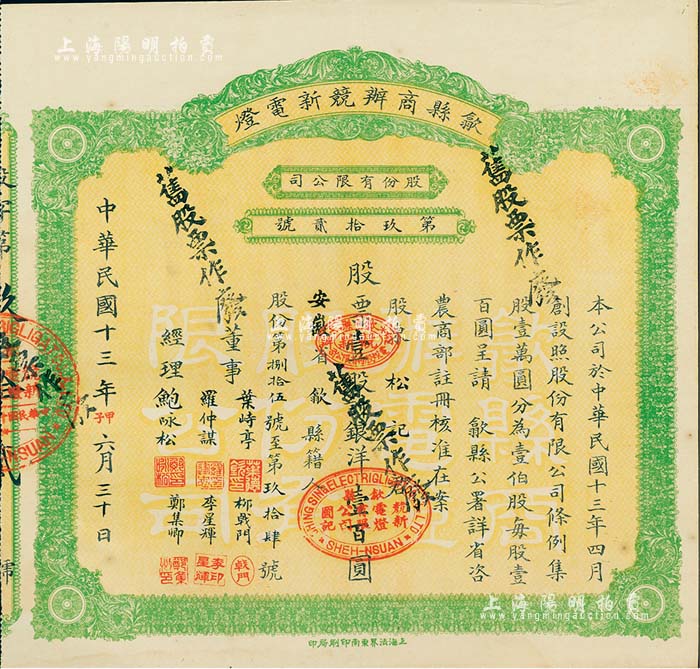 上海陽明拍賣
www.yangmingauction.com
歙縣商辦競新電燈
股份有限公司
第玖拾貳號
本公司於中華民國十三年四月
創設照股份有限公司條例集
股壹萬圓分為壹伯股每股壹
百圓呈請 歙縣公署詳省咨
農商部註冊核准在案
股東 松記
股票壹股銀洋壹百圓
安徽省歙縣籍人
股份第捌拾伍號至第玖拾肆號
董事 葉峙亭 柳戟門
羅仲謀 李星輝
經理 鮑咏松 鄭集卿
中華民國十三年甲子六月三十日
舊股票作廢
舊股票作廢
舊股票作廢
競新
歙電燈
縣公司
圖記
SHEH-HSUAN
上海法界東南印刷局印
上海陽明拍賣
www.yangmingauction.com